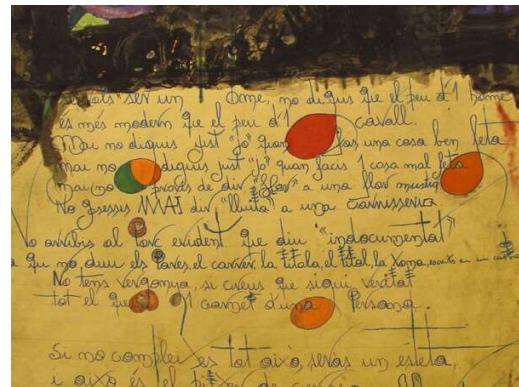 ser un Ome, no diguis que el peu d'1 home
és més modern que el peu d'1 cavall.
Mai no diguis just "jo" quan fas una cosa ben feta
mai no diguis just "jo" quan facis 1 cosa mal feta
mai no provés de dir "flor" a una flor mustia
No gosessis MAI dir "lluita" a una carnisseria
No arribis al Porc evident que diu "indocumentat"
a qui no duu els Papes, el carner, la titala, el títol, la
No tens vergonya, si creus que sigui veritat
tot el que 1 carnet d'una Persona.
Si no compleixes tot això, seràs un esteta,
i això és el